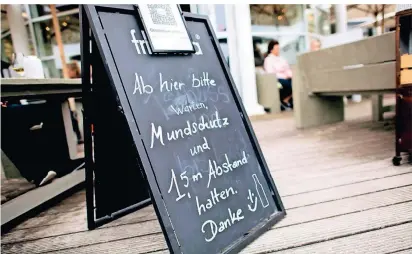 Ab hier bitte
warten,
Mundschutz
und
1,5m Abstand
halten.
Danke